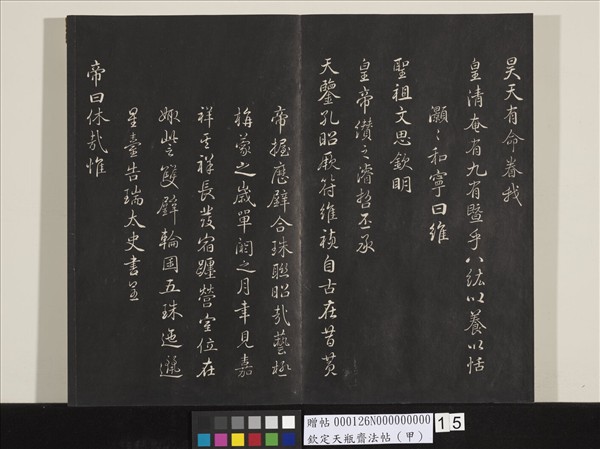 昊天有命眷我
皇清奄有九有暨乎八紘以養以恬
灝〻和寧曰維
聖祖文思欽明
皇帝纘之濬哲丕承
天鑒孔昭厥符維禎自古在昔黃
帝握歷璧合珠聯昭哉藝極
旃蒙之歲單閼之月聿見嘉
祥其祥長發宿躔營室位在
娵訾雙璧輪囷五珠迤邐
星臺告瑞太史書呈
帝曰休哉惟
贈帖 000126N000000000
欽定天瓶齋法帖(甲)
15